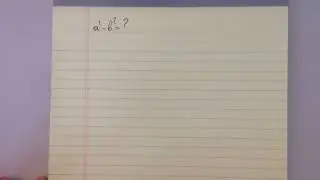 a²-b²=?